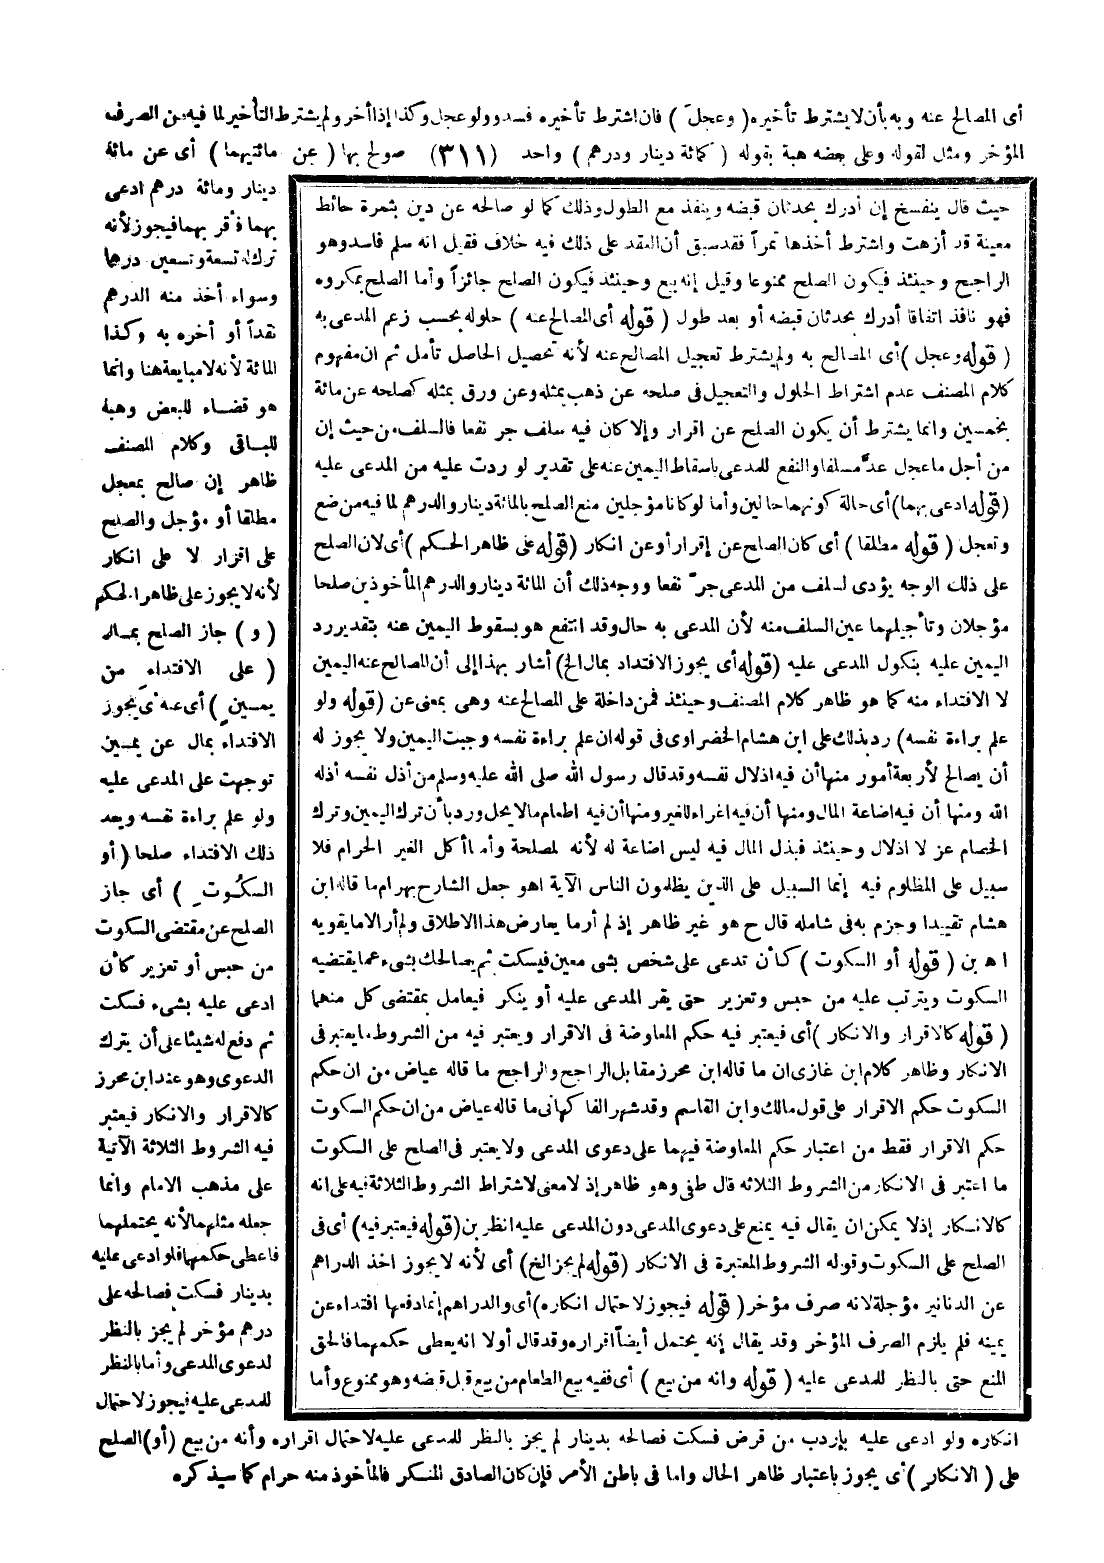 أى المصالح عنه وبه بأن لا يشترط تأخيره ( وعجل ) فان اشترط تأخيره فسد ولو عجل وكذا إذا أخر ولم يشترط التأخير لما فيه من الصرف
المؤخر ومثل لقوله وعلى بعضه هبة بقوله ( كمائة دينار ودرهم ) واحد (٣١١) صولح بها ( عن مائتيهما ) أى عن مائة
دينار ومائة درهم ادعى
بهما فأقر بهما فيجوز لأنه
ترك له تسعة وتسعين درهما
وسواء أخذ منه الدرهم
نقداً أو أخره به وكذا
المائة لأنه لا مبايعة هنا وانما
هو قضاء للبعض وهبة
للباقى وكلام المصنف
ظاهر إن صالح بمعجل
مطلقا أو مؤجل والصلح
على اقرار لا على انكار
لأنه لا يجوز على ظاهر الحكم
( و ) جاز الصلح بمال
( على الافتداء من
يمين ) أى عنه أى يجوز
الافتداء بمال عن يمين
توجهت على المدعى عليه
ولو علم براءة نفسه ويعد
ذلك الافتداء صلحا ( أو
السكوت ) أى جاز
الصلح عن مقتضى السكوت
من حبس أو تعزير كأن
ادعى عليه بشىء فسكت
ثم دفع له شيئا على أن يترك
الدعوى وهو عند ابن محرز
كالاقرار والانكار فيعتبر
فيه الشروط الثلاثة الآتية
على مذهب الامام وانما
جعله مثلهما لأنه يحتملهما
فاعطى حكمهما فلو ادعى عليه
بدينار فسكت فصالحه على
درهم مؤخر لم يجز بالنظر
لدعوى المدعى وأما بالنظر
للمدعى عليه فيجوز لاحتمال
حيث قال ينفسخ إن أدرك بحدثان قبضه وينفذ مع الطول وذلك كما لو صالحه عن دين بثمرة حائط
معينة قد أزهت واشترط أخذها تمراً فقد سبق أن العقد على ذلك فيه خلاف فقيل انه سلم فاسد وهو
الراجح وحينئذ فيكون الصلح ممنوعا وقيل إنه بيع وحينئذ فيكون الصلح جائزاً وأما الصلح بمكروه
فهو نافذ اتفاقا أدرك بحدثان قبضه أو بعد طول ( قوله أى المصالح عنه ) حلوله بحسب زعم المدعى به
( قوله وعجل ) أى المصالح به ولم يشترط تعجيل المصالح عنه لأنه تحصيل الحاصل تأمل ثم ان مفهوم
كلام المصنف عدم اشتراط الحلول والتعجيل فى صلحه عن ذهب بمثله وعن ورق بمثله كصلحه عن مائة
بخمسين وانما يشترط أن يكون الصلح عن اقرار وإلا كان فيه سلف جر نفعا فالسلف من حيث إن
من أجل ما عجل عد مسلفا والنفع للمدعى باسقاط اليمين عنه على تقدير لو ردت عليه من المدعى عليه
(قوله ادعى بهما) أى حالة كونهما حالين وأما لو كانا مؤجلين منع الصلح بالمائة دينار والدرهم لما فيه من ضع
وتعجل ( قوله مطلقا ) أى كان الصلح عن إقرار أو عن انكار (قوله على ظاهر الحكم ) أى لان الصلح
على ذلك الوجه يؤدى لسلف من المدعى جرّ نفعا ووجه ذلك أن المائة دينار والدرهم المأخوذين صلحا
مؤجلان وتأجيلهما عين السلف منه لأن المدعى به حال وقد انتفع هو بسقوط اليمين عنه بتقدير رد
اليمين عليه بنكول المدعى عليه (قوله أى يجوز الافتداء بمال الخ) أشار بهذا إلى أن المصالح عنه اليمين
لا الافتداء منه كما هو ظاهر كلام المصنف وحينئذ فمن داخلة على المصالح عنه وهى بمعنى عن (قوله ولو
علم براءة نفسه) رد بذلك على ابن هشام الخضراوى فى قوله ان علم براءة نفسه وجبت اليمين ولا يجوز له
أن يصالح لأربعة أمور منها أن فيه اذلال نفسه وقد قال رسول الله صلى الله عليه وسلم من أذل نفسه أذله
الله ومنها أن فيه اضاعة المال ومنها أن فيه اغراء للغير ومنها أن فيه اطعام مالا يحل ورد بأن ترك اليمين وترك
الخصام عز لا اذلال وحينئذ فبذل المال فيه ليس اضاعة له لأنه لمصلحة وأما أكل الغير الحرام فلا
سبيل على المظلوم فيه إنما السبيل على الذين يظلمون الناس الآية اهو جعل الشارح بهرام ما قاله ابن
هشام تقييدا وجزم به فى شامله قال ح هو غير ظاهر إذ لم أر ما يعارض هذا الاطلاق ولم أر الا ما يقويه
اه بن ( قوله أو السكوت ) كأن تدعى على شخص بشى معين فيسكت ثم يصالحك بشىء عما يقتضيه
السكوت ويترتب عليه من حبس وتعزير حتى يقر المدعى عليه أو ينكر فيعامل بمقتضى كل منهما
( قوله كالاقرار والانكار ) أى فيعتبر فيه حكم المعاوضة فى الاقرار ويعتبر فيه من الشروط ما يعتبر فى
الانكار وظاهر كلام ابن غازى ان ما قاله ابن محرز مقابل الراجح والراجح ما قاله عياض من ان حكم
السكوت حكم الاقرار على قول مالك وابن القاسم وقد شهر الفاكهانى ما قاله عياض من ان حكم السكوت
حكم الاقرار فقط من اعتبار حكم المعاوضة فيهما على دعوى المدعى ولا يعتبر فى الصلح على السكوت
ما اعتبر فى الانكار من الشروط الثلاثه قال طفى وهو ظاهر إذ لا معنى لاشتراط الشروط الثلاثة فيه على انه
كالانكار إذلا يمكن ان يقال فيه يمنع على دعوى المدعى دون المدعى عليه انظر بن (قوله فيعتبر فيه) أى فى
الصلح على السكوت وقوله الشروط المعتبرة فى الانكار (قوله لم يجز الخ) أى لأنه لا يجوز اخذ الدراهم
عن الدنانير مؤجلة لانه صرف مؤخر ( قوله فيجوز لاحتمال انكاره ) أى والدراهم إنما دفعها افتداء عن
يمينه فلم يلزم الصرف المؤخر وقد يقال إنه يحتمل أيضاً اقراره وقد قال أولا انه يعطى حكمهما فالحق
المنع حتى بالنظر للمدعى عليه ( قوله وانه من بيع ) أى ففيه بيع الطعام من بيع قبل قبضه وهو ممنوع وأما
انكاره ولو ادعى عليه بإردب من قرض فسكت فصالحه بدينار لم يجز بالنظر للمدعى عليه لاحتمال اقراره وأنه من بيع (أو) الصلح
على ( الانكار ) أى يجوز باعتبار ظاهر الحال واما فى باطن الأمر فإن كان الصادق المنكر فالمأخوذ منه حرام كما سيذكره